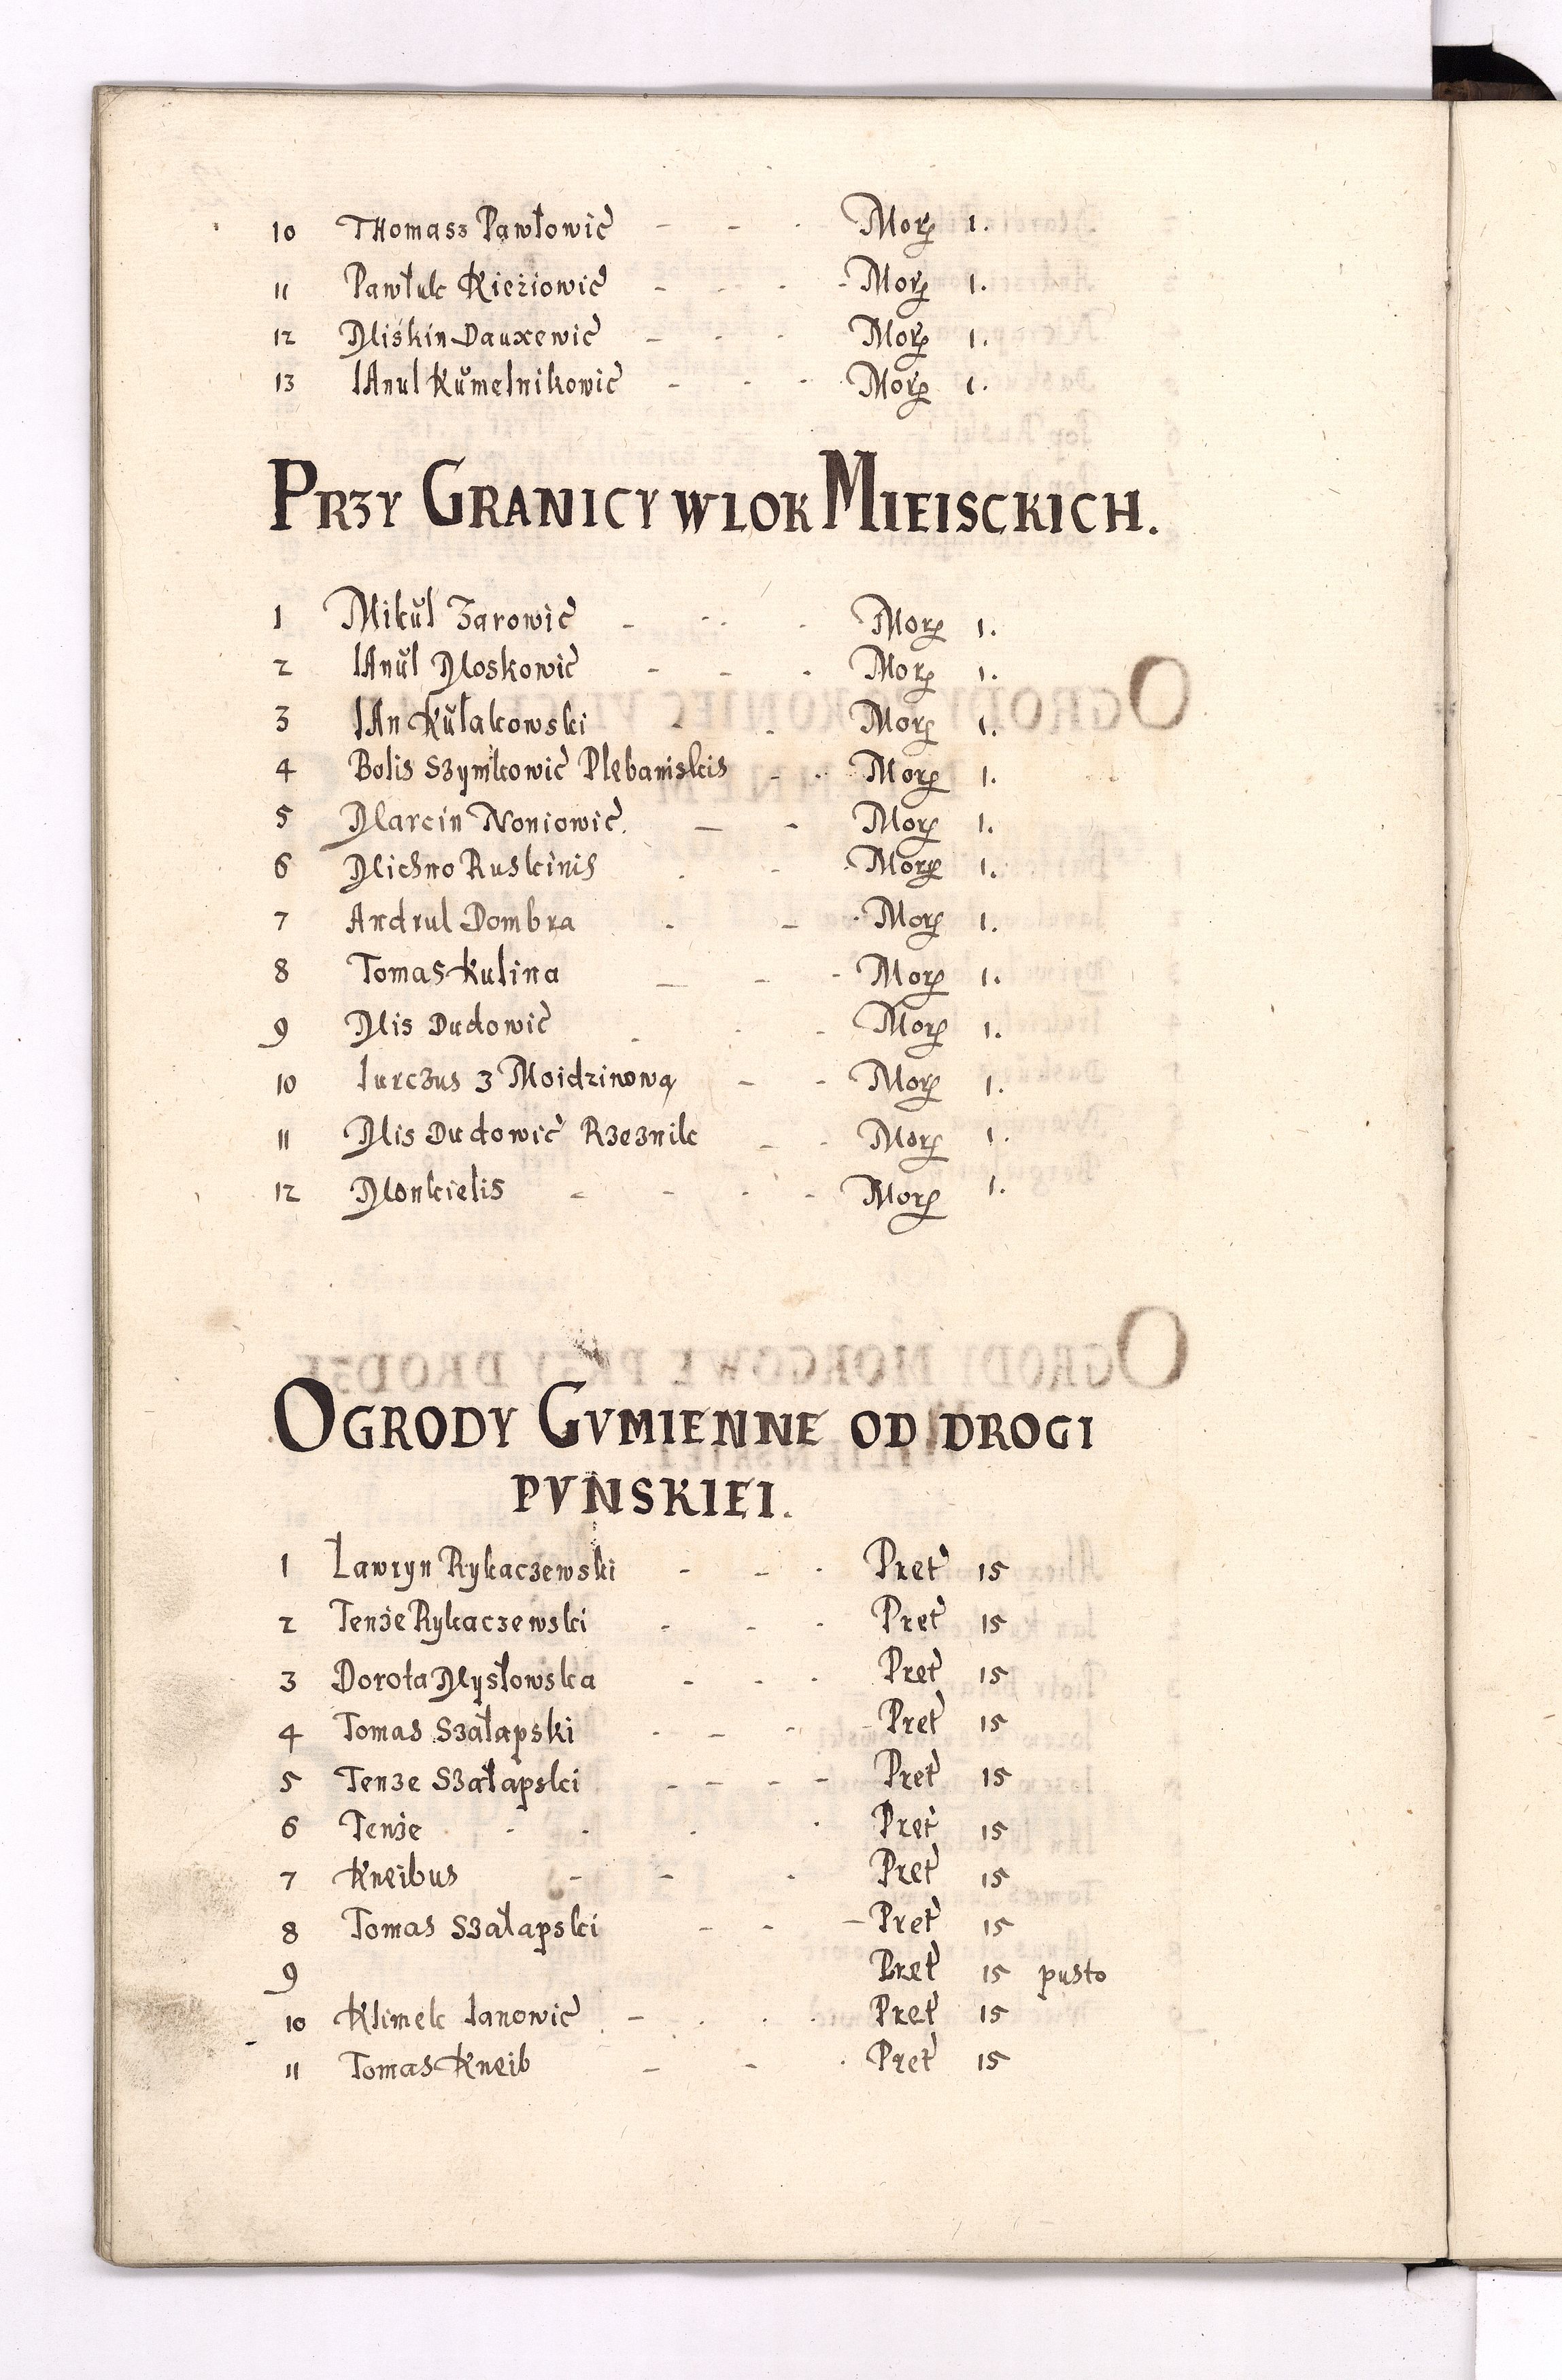 10 THomasz Pawłowic Morg 1.
11 Pawłuk Kieżiowic Morg 1.
12 Miśkin Dauxewic Morg 1.
13 IAnul Kŭmelnikowic Morg 1.
PRZY GRANICY WLOK MIEISCKICH.
1 Mikŭl Zarowic Morg 1.
2 IAnŭl Moskowic Morg 1.
3 IAn Kŭłakowski Morg 1.
4 Bolis Szymkowic Plebaniskis Morg 1.
5 Marcin Noniowic Morg 1.
6 Michno Ruskinis Morg 1.
7 Andrul Dombra Morg 1.
8 Tomas Kulina Morg 1.
9 Mis Dudowic Morg 1.
10 Iurczus z Moidzinową Morg 1.
11 Mis Dudowic Rzeznik Morg 1.
12 Monkielis Morg 1.
OGRODY GVMIENNE OD DROGI
PVNSKIEI.
1 Ławryn Rykaczewski Pret 15
2 Tenże Rykaczewski Pret 15
3 Dorota Mysłowska Pret 15
4 Tomas Szałapski Pret 15
5 Tenze Szałapski Pret 15
6 Tenże Pret 15
7 Kneibus Pret 15
8 Tomas Szałapski Pret 15
9 Pret 15 pusto
10 Klimek Ianowic Pret 15
11 Tomas Kneib Pret 15